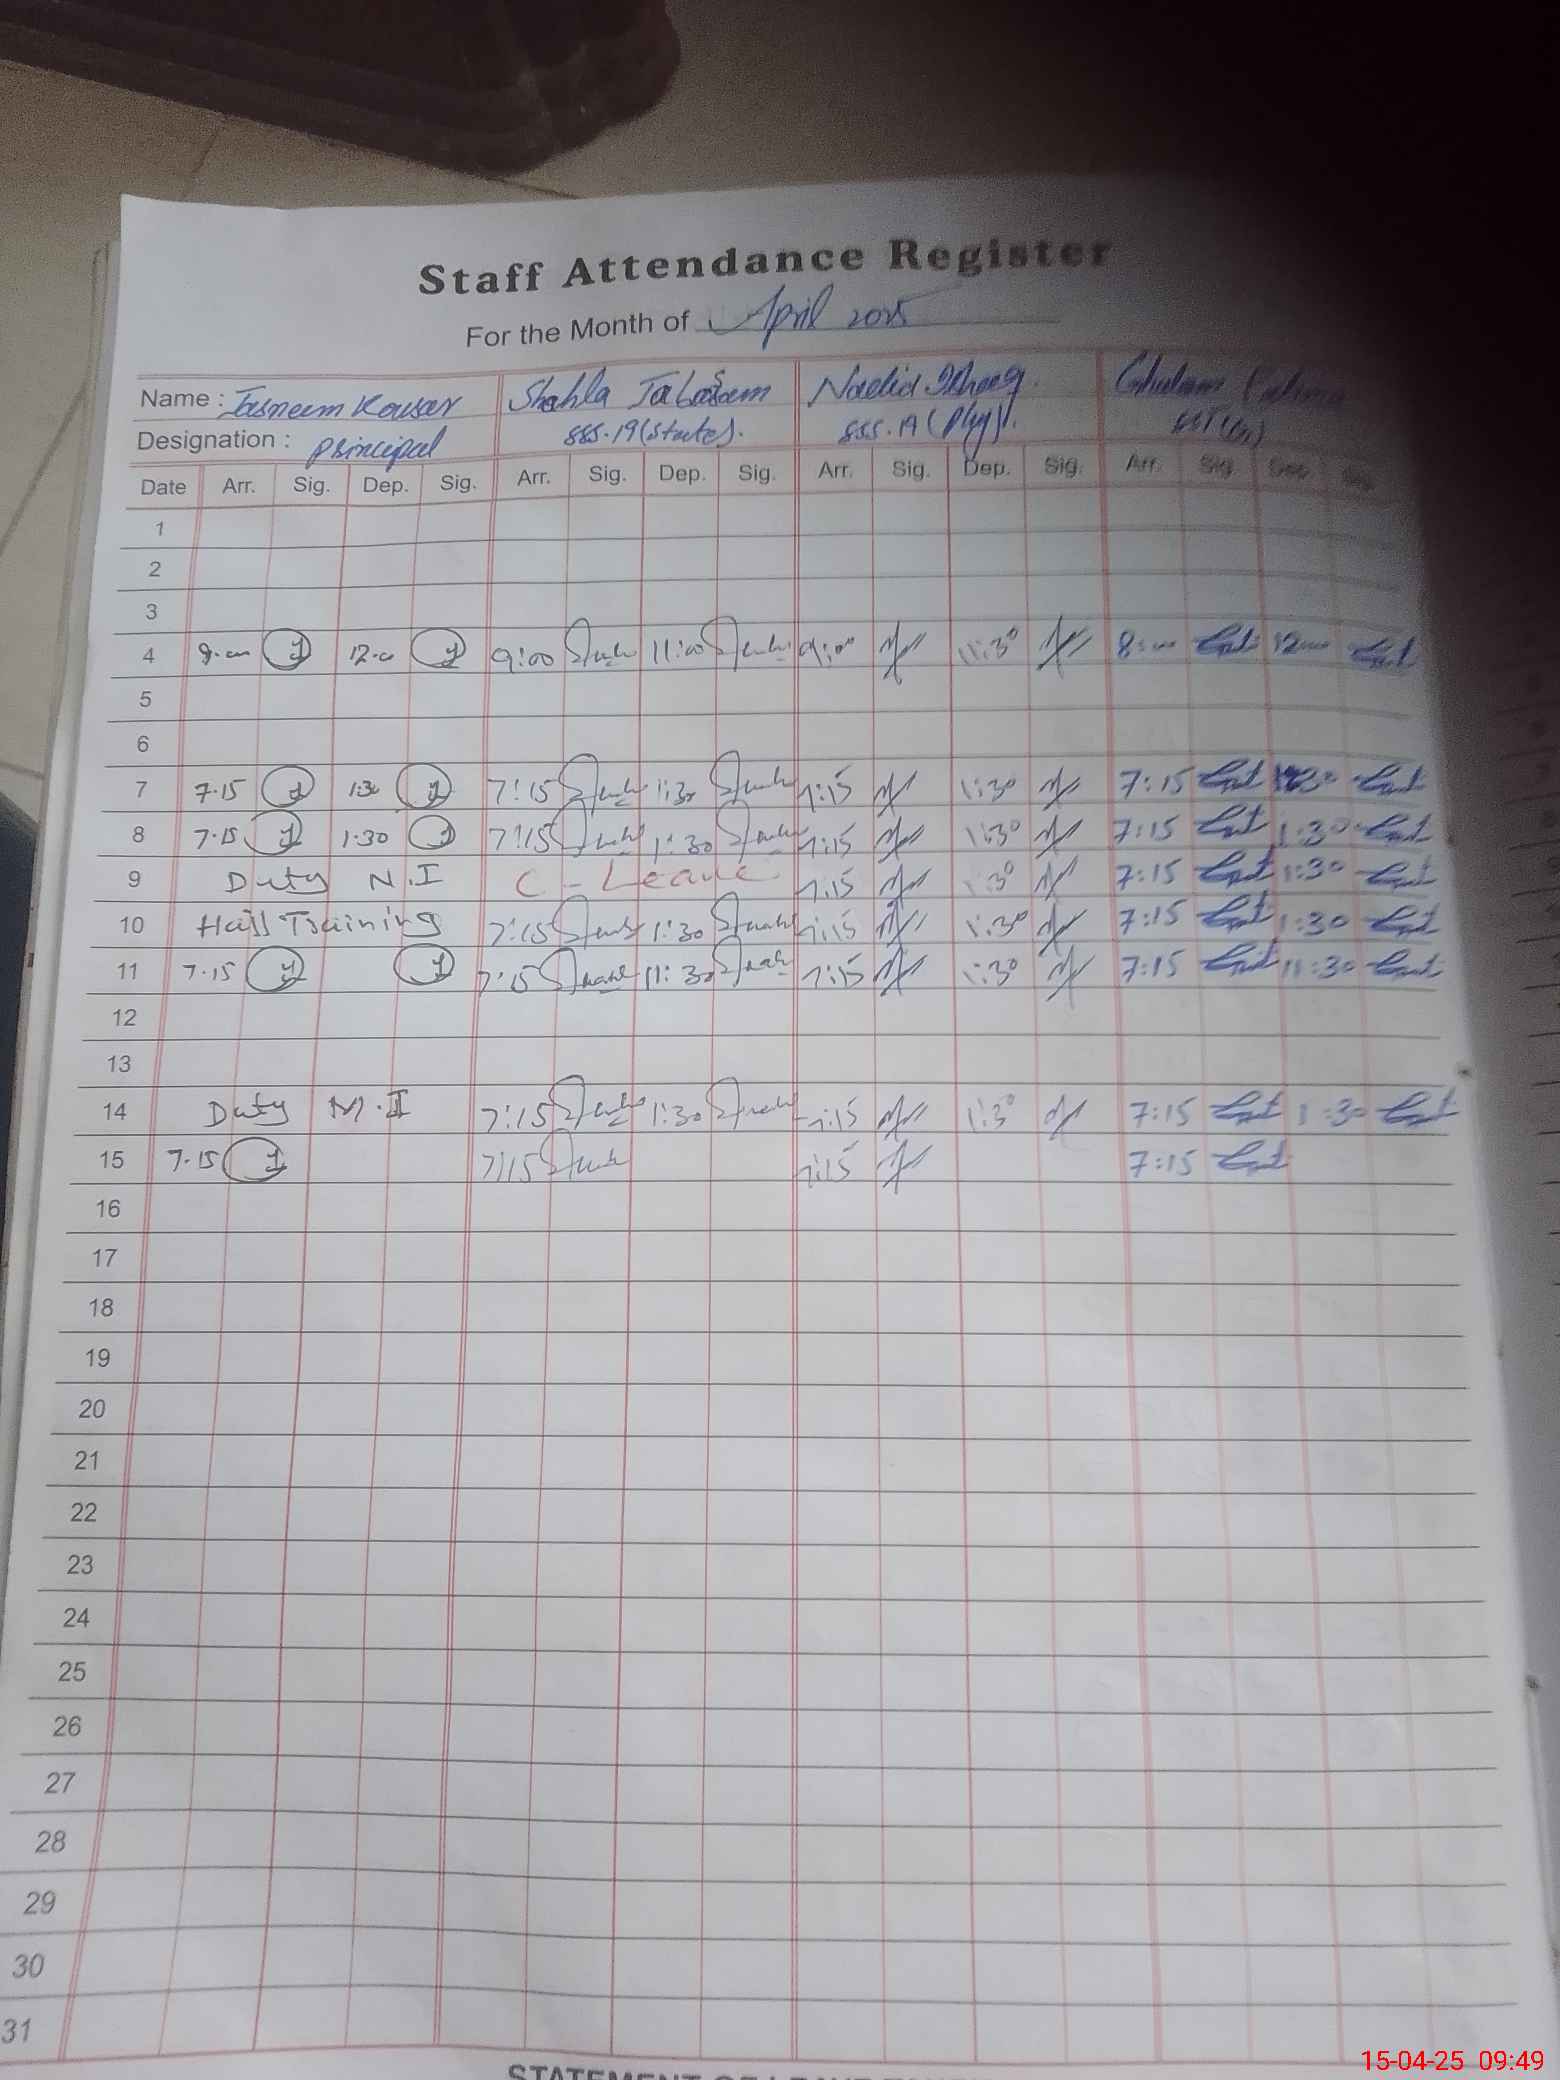 Staff Attendance Register
For the Month of April 2025
Name : Tasneem Kousar Shahla Tabassam Nadia Ghulam Fatima
Designation : Principal SSS.19 (State). SSS.19 (Phy).
Date Arr. Sig. Dep. Sig. Arr. Sig. Dep. Sig. Arr. Sig. Dep. Sig. Arr. Sig.
1
2
3
4 12.00 9:00 11:00 9:00 11:30 8:00 12:00
5
6
7 7.15 1:30 7:15 1:30 7:15 1:30 7:15
8 7.15 1.30 7:15 1:30 7:15 1:30 7:15 1:30
9 Duty N.I C - Leave 7:15 1:30 7:15 1:30
10 Hall Training 7:15 1:30 7:15 1:30 7:15 1:30
11 7.15 7:15 11:30 7:15 1:30 7:15 11:30
12
13
14 Duty M.I 7:15 1:30 7:15 1:30 7:15 1:30
15 7.15 7:15 7:15 7:15
16
17
18
19
20
21
22
23
24
25
26
27
28
29
30
31
15-04-25 09:49